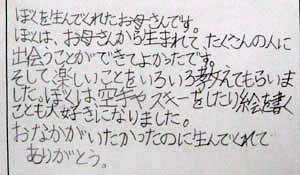 ぼくを生んでくれたお母さんです。
ぼくは、お母さんから生まれて、たくさんの人に
出会うことができてよかったです。
そして楽しいことをいろいろ教えてもらいま
した。ぼくは空手やスキーをしたり絵を書く
ことも大好きになりました。
おなかがいたかったのに生んでくれて
ありがとう。